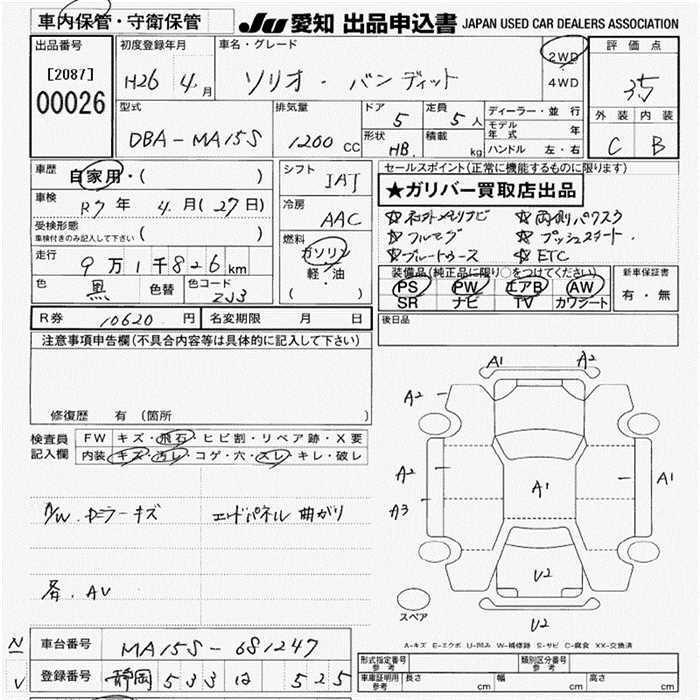 車内保管・守衛保管
JU 愛知 出品申込書 JAPAN USED CAR DEALERS ASSOCIATION
出品番号 初度登録年月 車名・グレード 2WD 評価点
[2087] H26 4月 ソリオ・バンディット 4WD 3.5
00026
型式 排気量 ドア 定員 ディーラー・並行 外装 内装
DBA-MA15S 1200 CC 5 5人 モデル年式 年 C B
形状 HB. 積載 kg ハンドル 左・右
車歴 自家用・( ) シフト IAT セールスポイント(正常に機能するものに限ります)
車検 R7年 4月(27日) 冷房 AAC ★ガリバー買取店出品
受検形態 車検付きのみ記入して下さい ( ) 燃料 ガソリン 軽・油 ( )
☆フルセグ ☆プッシュスタート.
☆ブルートゥース ☆ETC
走行 9万1千826km
色 黒 色替 色コード ZJ3
装備品(純正品に限り○をつけてください) 新車保証書
PS PW エアB AW 有・無
SR ナビ TV カワシート
R券 10620円 名変期限 月 日 後日品
注意事項申告欄(不具合内容等は具体的に記入して下さい)
修復歴 有 (箇所 )
検査員記入欄 FW キズ・飛石・ヒビ割・リペア跡・X要
内装 キズ・汚レ・コゲ・穴・スレ・キレ・破レ
A1 A2
A2
A2 A1 A1
A3
U2
U2
エンドパネル曲がり
各.AV
スペア
A-キズ E-エクボ U-凹み W-補修跡 S-サビ C-腐食 XX-交換済
N
V
車台番号 MA15S-681247
登録番号 静岡 533 は 525
型式指定番号 参考 類別区分番号 参考
車庫証明用 参考 長さ cm 幅 cm 高さ cm